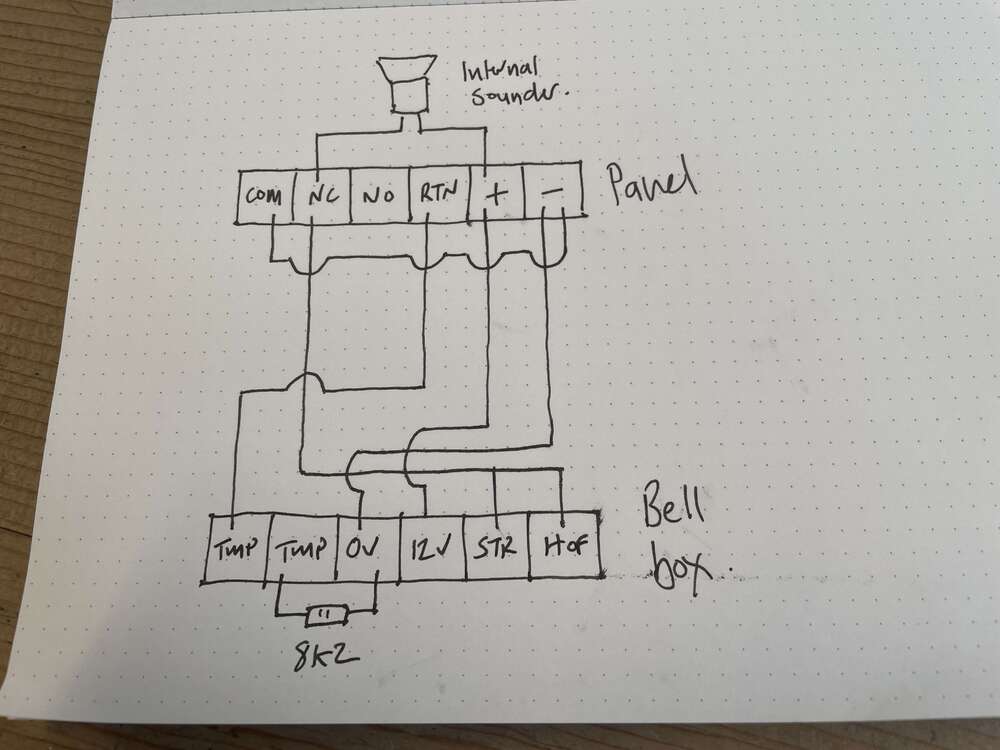 Internal
Sounder.
COM NC NO RTN + -
Panel
Bell
box.
TMP TMP 0V 12V STR HOF
8K2